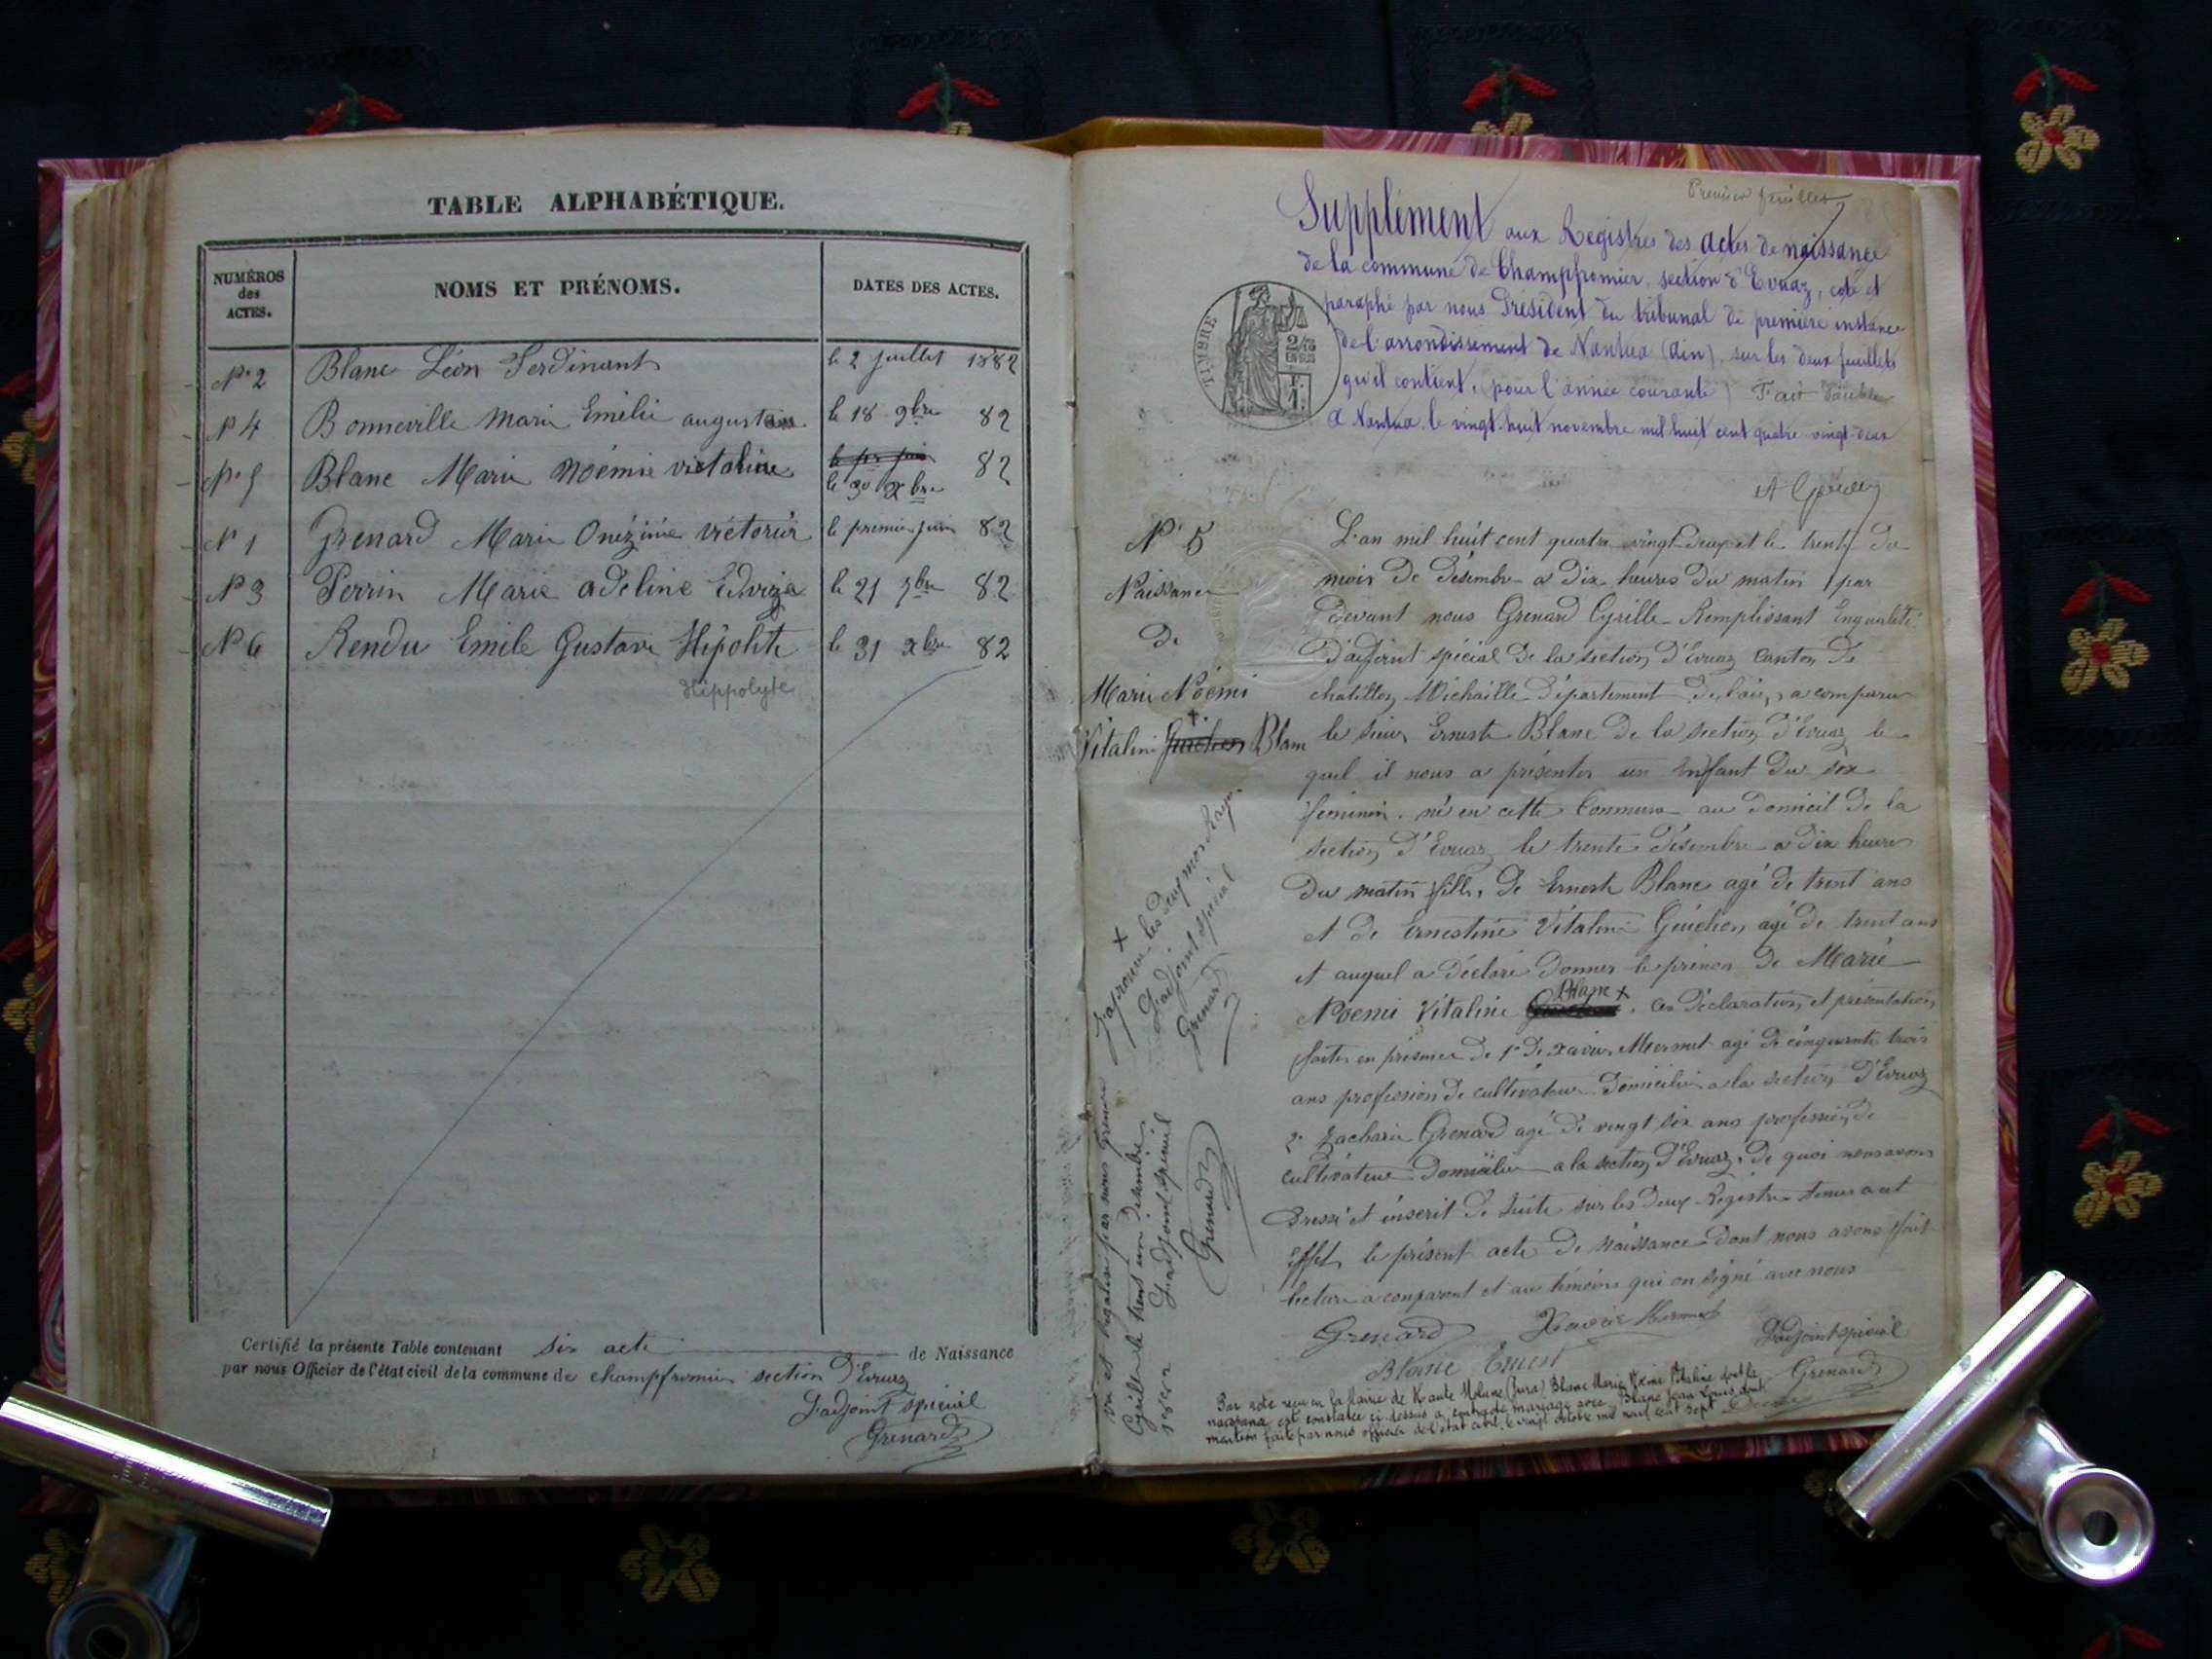 TABLE ALPHABÉTIQUE.
NUMÉROS des ACTES.
NOMS ET PRÉNOMS.
DATES DES ACTES.
N° 2 Blanc Léon Ferdinant le 2 juillet 1882
N° 4 Bonneville Marie Emélie le 18 9bre 82
N° 5 Blanc Marie Noémie victaline le 30 Xbre 82
N° 1 Grenard Marie Onézinie victorier le premier juin 82
N° 3 Perrin Marie adeline Edwige le 21 7bre 82
N° 6 Rendu Emile Gustave Hipolite le 31 Xbre 82
Hippolyte
Certifié la présente Table contenant six acte de Naissance
par nous Officier de l'état civil de la commune de champfromier section d'Evuaz
L'adjoint spécial
Grenard
Premier feuillet
Supplément aux Registres des actes de naissance
de la commune de Champfromier, section d'Evuaz, coté et
paraphé par nous Président du tribunal de première instance
de l'arrondissement de Nantua (Ain), sur les deux feuillets
qu'il contient, pour l'année courante Fait double
à Nantua le vingt-huit novembre mil huit cent quatre vingt-deux
TIMBRE
2/10 EN SUS
F. 1.
N° 5
Naissance
de
Marie Noémi
Vitalini Guichon Blanc
L'an mil huit cent quatre vingt deux et le trente du
mois de désembre a dix heures du matin par
devant nous Grenard Cyrille Remplissant Enqualité
d'adjoint spécial de la section d'Evuaz canton de
chatillon Michaille département de l'ain, a comparu
le sieur Ernest Blanc de la section d'Evuaz le
quel il nous a présenter un Enfant du sex
féminin. né en cette Commune au domicil de la
section d'Evuaz le trente désembre a dix heures
du matin fille de Ernest Blanc agé de trent ans
et de Ernestine Vitalini Guichon agé de trent ans
et auquel a déclaré donner le prénom de Marie
Noemi Vitaline Blanc +. Ces déclaration et présentation
faites en présence de 1° de Xavier Mermet agé de cinquante trois
ans profession de cultivateur domicilié a la section d'Evuaz
2° Zacharie Grenard agé de vingt six ans profession de
cultivateur domicilie a la section d'Evuaz. De quoi nous avons
dressé et inscrit de suite sur les deux Registre tenus a cet
effet le présent acte de naissance dont nous avons fait
lecture a comparant et au témoins qui on signé avec nous
Grenard Xavier Mermet L'adjoint spécial
Blanc Ernest Grenard
+ J'aprouve les deux mos Rayé
L'adjoint spécial
Grenard
vu et légalisé par nous Grenard
Cyrille le trent un désembre
1882 L'adjoint spécial
Grenard
Par note reçue en la Mairie de Haute Molune (Jura) Blanc Marie Noémi Vitaline dont la
naissance est constatée ci-dessus a contracté mariage avec Blanc Jean Louis dont
mention faite par nous officier de l'état civil, le vingt octobre mil neuf cent sept